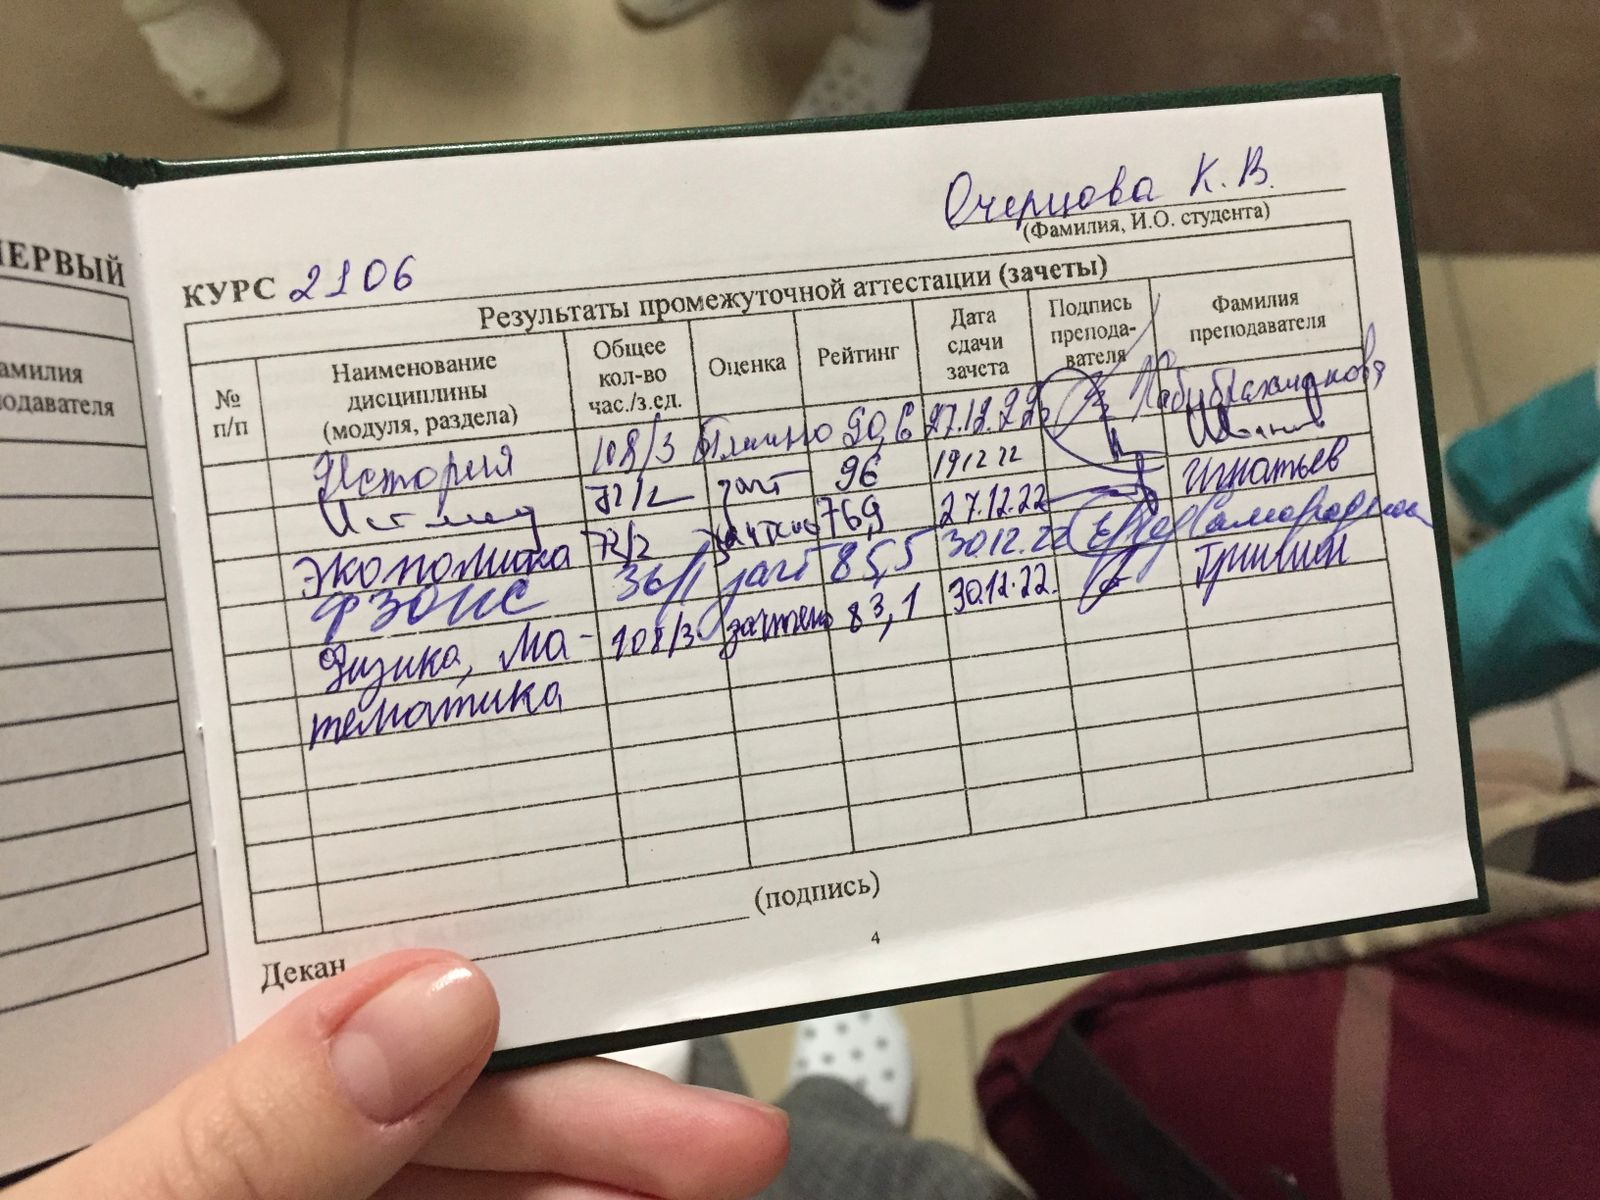 ПЕРВЫЙ
амилия
подавателя
Очерцова К. В.
(Фамилия, И.О. студента)
КУРС 2106
Результаты промежуточной аттестации (зачеты)
№ п/п
Наименование дисциплины (модуля, раздела)
Общее кол-во час./з.ед.
Оценка
Рейтинг
Дата сдачи зачета
Подпись препода-вателя
Фамилия преподавателя
История 108/3 Отлично 90,6 27.12.22
Ист мед 72/2 зачт 96 19 12 22 Иванов
Экономика 72/2 зачтено 76,9 27.12.22 Игнатьев
ФЗОИС 36/1 зачт 85,5 30.12.22
Физика, Ма- 108/3 зачтено 83,1 30.12.22. Гришин
тематика
Декан
(подпись)
4